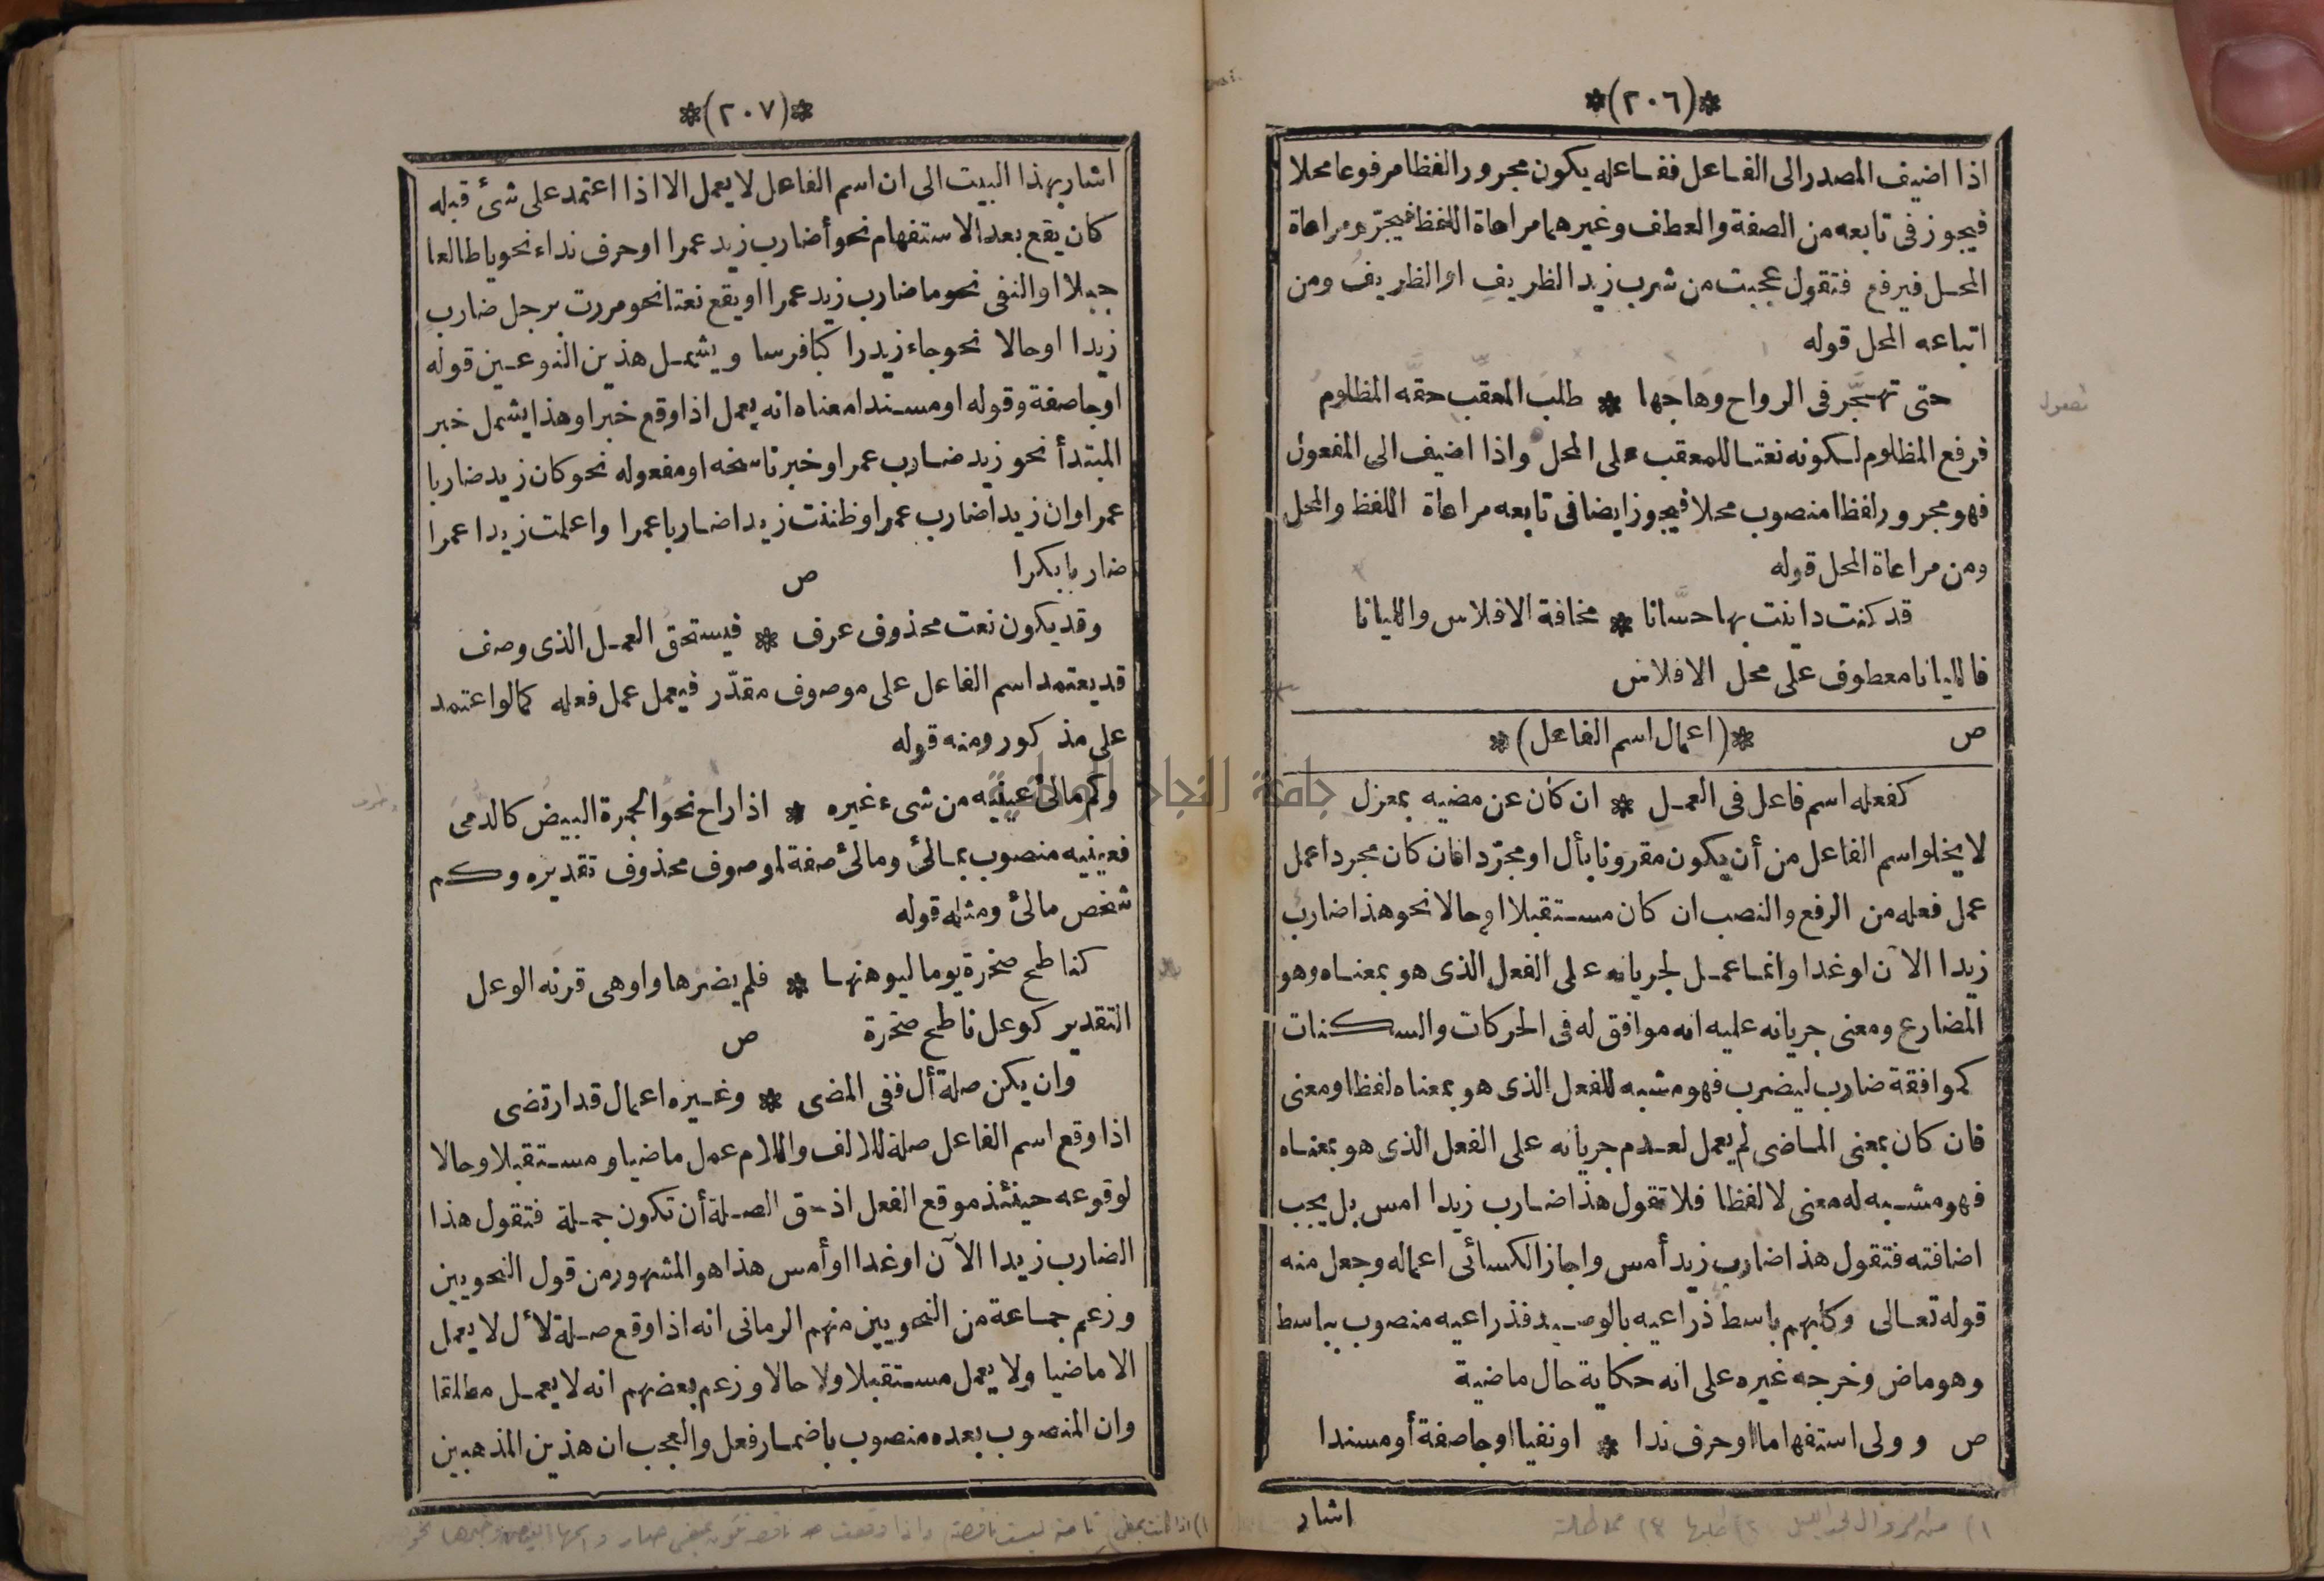 *(٢٠٦)*
اذا اضيف المصدر الى الفاعل ففاعله يكون مجرورا لفظا مرفوعا محلا
فيجوز فى تابعه من الصفة والعطف وغيرهما مراعاة اللفظ فيجرّ ومراعاة
المحل فيرفع فتقول عجبت من شرب زيد الظريفِ او الظريفُ ومن
اتباعه المحل قوله
حتى تهجَّر فى الرواح وهاجها * طلبَ المعقِّب حقَّه المظلومُ
فرفع المظلوم لكونه نعتا للمعقب على المحل واذا اضيف الى المفعول
فهو مجرور لفظا منصوب محلا فيجوز ايضا فى تابعه مراعاة اللفظ والمحل
ومن مراعاة المحل قوله
قد كنت داينت بها حسَّانا * مخافة الافلاس والليانا
فالليانا معطوف على محل الافلاس
ص *(اعمال اسم الفاعل)*
كفعله اسم فاعل فى العمل * ان كان عن مضيه بمعزل
لا يخلو اسم الفاعل من أن يكون مقرونا بأل او مجرّدا فان كان مجردا عمل
عمل فعله من الرفع والنصب ان كان مستقبلا او حالا نحو هذا ضارب
زيدا الآن او غدا وانما عمل لجريانه على الفعل الذى هو بمعناه وهو
المضارع ومعنى جريانه عليه انه موافق له فى الحركات والسكنات
كموافقة ضارب ليضرب فهو مشبه للفعل الذى هو بمعناه لفظا ومعنى
فان كان بمعنى الماضى لم يعمل لعدم جريانه على الفعل الذى هو بمعناه
فهو مشبه له معنى لا لفظا فلا تقول هذا ضارب زيدا امس بل يجب
اضافته فتقول هذا ضارب زيد أمس واجاز الكسائى اعماله وجعل منه
قوله تعالى وكلبهم باسط ذراعيه بالوصيد فذراعيه منصوب بباسط
وهو ماض وخرجه غيره على انه حكاية حال ماضية
ص وولى استفهاما او حرف ندا * او نفيا او جا صفة أو مسندا
اشار
*(٢٠٧)*
اشار بهذا البيت الى ان اسم الفاعل لا يعمل الا اذا اعتمد على شئ قبله
كان يقع بعد الاستفهام نحو أضارب زيد عمرا او حرف نداء نحو يا طالعا
جبلا او النفى نحو ما ضارب زيد عمرا او يقع نعتا نحو مررت برجل ضارب
زيدا او حالا نحو جاء زيد راكبا فرسا ويشمل هذين النوعين قوله
اوجا صفة وقوله او مسندا معناه انه يعمل اذا وقع خبرا وهذا يشمل خبر
المبتدأ نحو زيد ضارب عمرا وخبر ناسخه او مفعوله نحو كان زيد ضاربا
عمرا وان زيدا ضارب عمرا وظننت زيدا ضاربا عمرا واعلمت زيدا عمرا
ضاربا بكرا ص
وقد يكون نعت محذوف عرف * فيستحق العمل الذى وصف
قد يعتمد اسم الفاعل على موصوف مقدّر فيعمل عمل فعله كما لو اعتمد
على مذكور ومنه قوله
وكم مالئ عينيه من شىء غيره * اذا راح نحو الجمرة البيض كالدمى
فعينيه منصوب بمالئ ومالئ صفة لموصوف محذوف تقديره وكم
شخص مالئ ومثله قوله
كناطح صخرة يوما ليوهنها * فلم يضرها واوهى قرنه الوعل
التقدير كوعل ناطح صخرة ص
وان يكن صلة أل ففى المضى * وغيره اعمال قد ارتضى
اذا وقع اسم الفاعل صلة للالف واللام عمل ماضيا ومستقبلا وحالا
لوقوعه حينئذ موقع الفعل اذ حق الصلة أن تكون جملة فتقول هذا
الضارب زيدا الآن او غدا او أمس هذا هو المشهور من قول النحويين
وزعم جماعة من النحويين منهم الرمانى انه اذا وقع صلة لأل لا يعمل
الا ماضيا ولا يعمل مستقبلا ولا حالا وزعم بعضهم انه لا يعمل مطلقا
وان المنصوب بعده منصوب باضمار فعل والعجب ان هذين المذهبين
جامعة النجاح الوطنية